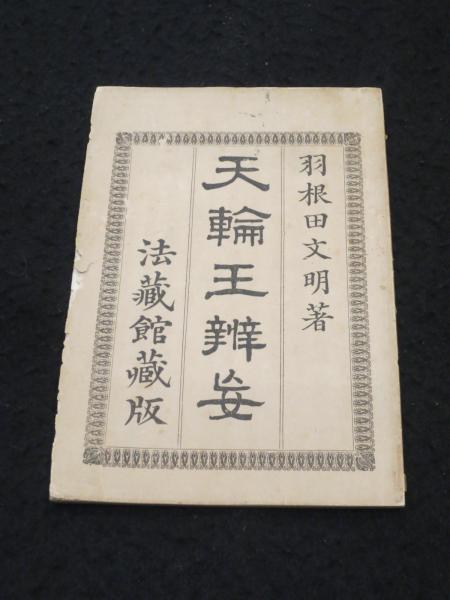 羽根田文明著
天輪王辨妄
法藏館藏版